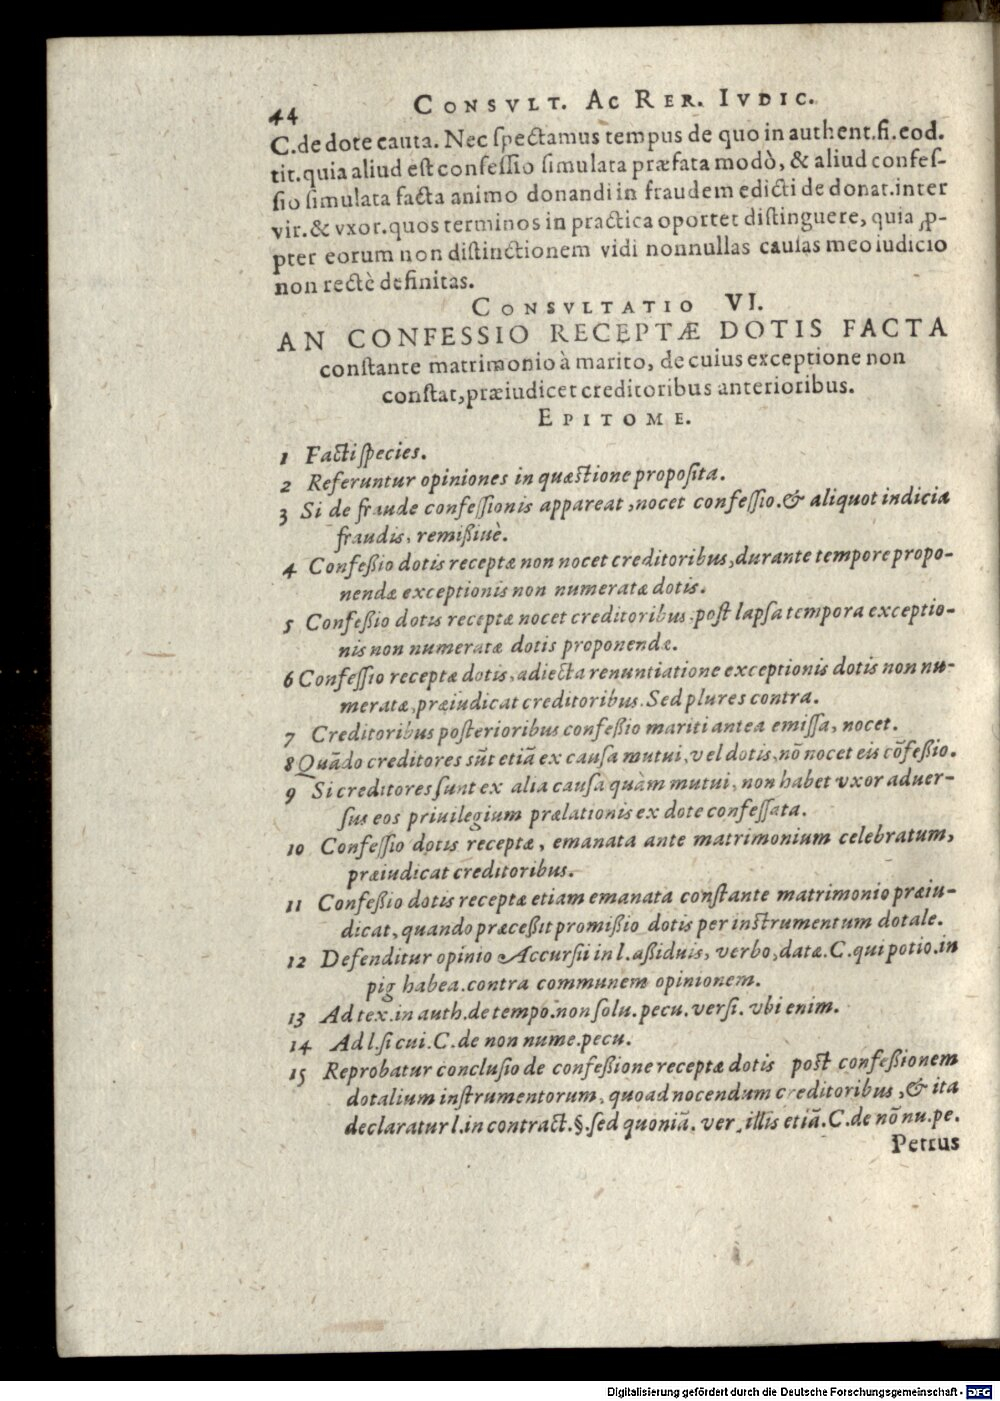 44 CONSVLT. AC RER. IVDIC.
C.de dote cauta. Nec ſpectamus tempus de quo in authent.ſi.eod.
tit.quia aliud eſt confeſſio ſimulata præfata modò, & aliud confeſ-
ſio ſimulata facta animo donandi in fraudem edicti de donat.inter
vir.& vxor.quos terminos in practica oportet diſtinguere, quia ꝓ-
pter eorum non diſtinctionem vidi nonnullas cauſas meo iudicio
non rectè definitas.
CONSVLTATIO VI.
AN CONFESSIO RECEPTÆ DOTIS FACTA
conſtante matrimonio à marito, de cuius exceptione non
conſtat,præiudicet creditoribus anterioribus.
EPITOME.
1 Facti ſpecies.
2 Referuntur opiniones in quæſtione propoſita.
3 Si de fraude confeſſionis appareat ,nocet confeſſio.& aliquot indicia
fraudis, remißiuè.
4 Confeßio dotis receptæ non nocet creditoribus,durante tempore propo-
nendæ exceptionis non numeratæ dotis.
5 Confeßio dotis receptæ nocet creditoribus,poſt lapſa tempora exceptio-
nis non numeratæ dotis proponendæ.
6 Confeſſio receptæ dotis,adiecta renuntiatione exceptionis dotis non nu-
meratæ,præiudicat creditoribus.Sed plures contra.
7 Creditoribus poſterioribus confeßio mariti antea emiſſa, nocet.
8 Quādo creditores sūt etiā ex cauſa mutui,vel dotis,nō nocet eis cōfeßio.
9 Si creditores ſunt ex alia cauſa quàm mutui, non habet vxor aduer-
ſus eos priuilegium prælationis ex dote confeſſata.
10 Confeſſio dotis receptæ, emanata ante matrimonium celebratum,
præiudicat creditoribus.
11 Confeßio dotis receptæ etiam emanata conſtante matrimonio præiu-
dicat,quando præceßit promißio dotis per inſtrumentum dotale.
12 Defenditur opinio Accurſii in l.aßiduis, verbo,datæ.C.qui potio.in
pig habea.contra communem opinionem.
13 Ad tex.in auth.de tempo.non ſolu.pecu.verſi. vbi enim.
14 Ad l.ſi cui.C.de non nume.pecu.
15 Reprobatur concluſio de confeßione receptæ dotis poſt confeßionem
dotalium inſtrumentorum, quoad nocendum creditoribus ,& ita
declaratur l.in contract.§.ſed quoniā. ver. illis etiā.C.de nō nu.pe.
Petrus
Digitalisierung gefördert durch die Deutsche Forschungsgemeinschaft - DFG